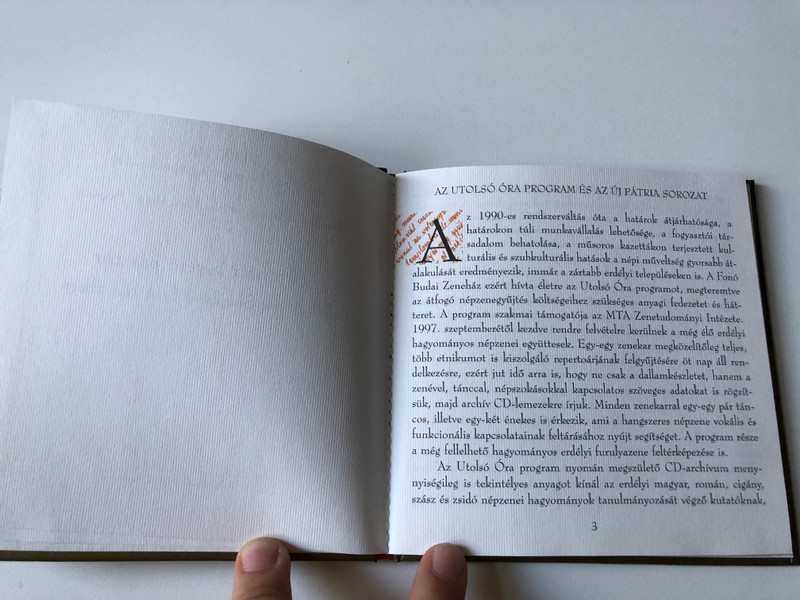 AZ UTOLSÓ ÓRA PROGRAM ÉS AZ ÚJ PÁTRIA SOROZAT
Az 1990-es rendszerváltás óta a határok átjárhatósága, a
határokon túli munkavállalás lehetősége, a fogyasztói tár-
sadalom behatolása, a műsoros kazettákon terjesztett kul-
turális és szubkulturális hatások a népi műveltség gyorsabb át-
alakulását eredményezik, immár a zártabb erdélyi településeken is. A Fonó
Budai Zeneház ezért hívta életre az Utolsó Óra programot, megteremtve
az átfogó népzenegyűjtés költségeihez szükséges anyagi fedezetet és hát-
teret. A program szakmai támogatója az MTA Zenetudományi Intézete.
1997. szeptemberétől kezdve rendre felvételre kerülnek a még élő erdélyi
hagyományos népzenei együttesek. Egy-egy zenekar megközelítőleg teljes,
több etnikumot is kiszolgáló repertoárjának felgyűjtésére öt nap áll ren-
delkezésre, ezért jut idő arra is, hogy ne csak a dallamkészletet, hanem a
zenével, tánccal, népszokásokkal kapcsolatos szöveges adatokat is rögzít-
sük, majd archív CD-lemezekre írjuk. Minden zenekarral egy-egy pár tán-
cos, illetve egy-két énekes is érkezik, ami a hangszeres népzene vokális és
funkcionális kapcsolatainak feltárásához nyújt segítséget. A program része
a még fellelhető hagyományos erdélyi furulyazene feltérképezése is.
Az Utolsó Óra program nyomán megszülető CD-archívum meny-
nyiségileg is tekintélyes anyagot kínál az erdélyi magyar, román, cigány,
szász és zsidó népzenei hagyományok tanulmányozását végző kutatóknak,
3